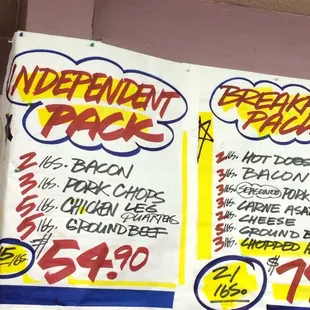 INDEPENDENT
PACK
2 lbs. BACON
3 lbs. PORK CHOPS
5 lbs. CHICKEN LEG
QUARTERS
5 lbs. GROUND BEEF
15
lbs
$54.90
BREAKF
PACK
2 lbs. HOT DOGS
3 lbs. BACON
3 lbs. SEASONED PORK
3 lbs. CARNE ASA
2 lbs. CHEESE
5 lbs. GROUND B
3 lbs. CHOPPED H
21
lbs.
$7